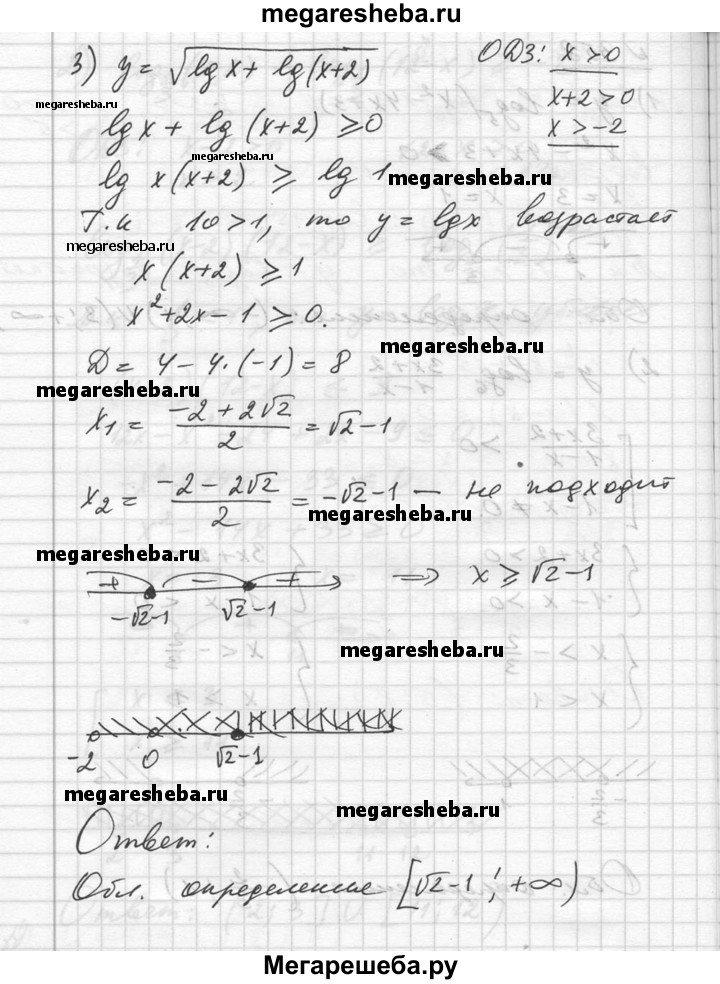 megaresheba.ru
3) y = √(lg x + lg (x+2)) ОДЗ: x > 0
megaresheba.ru x+2 > 0
lg x + lg (x+2) ⩾ 0 x > -2
megaresheba.ru
lg x (x+2) ⩾ lg 1 megaresheba.ru
Т.к 10 > 1, то y = lg x возрастает
megaresheba.ru
x (x+2) ⩾ 1
x² + 2x - 1 ⩾ 0.
megaresheba.ru
D = 4 - 4·(-1) = 8
megaresheba.ru
x₁ = (-2 + 2√2)/2 = √2 - 1
x₂ = (-2 - 2√2)/2 = -√2 - 1 — не подходит
megaresheba.ru
megaresheba.ru
+ - + ⟹ x ⩾ √2 - 1
-√2-1 √2-1
megaresheba.ru
-2 0 √2-1
megaresheba.ru
megaresheba.ru
Ответ:
Обл. определение [√2-1; +∞)
Мегарешеба.ру